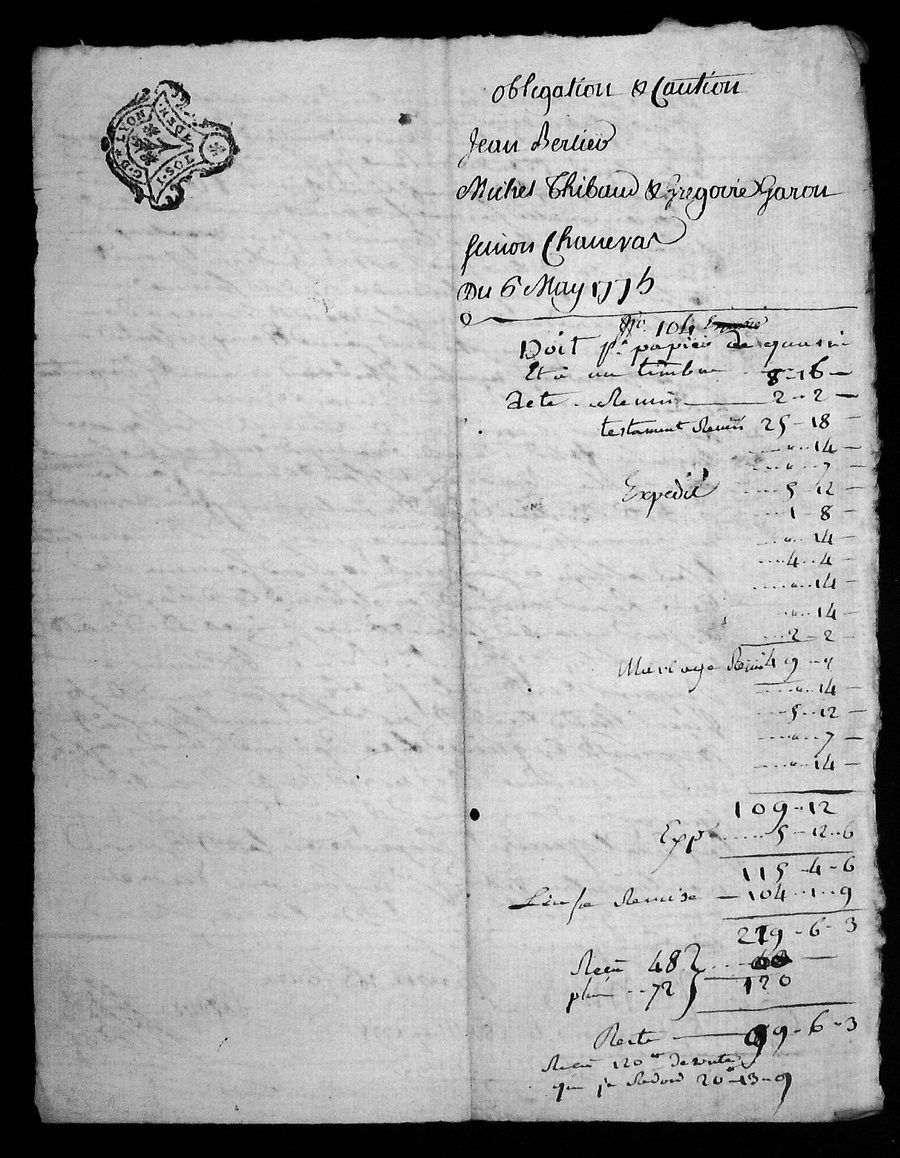 G. D. LYON
DEN
SOL.
obligation & Caution
Jean Bertier
Michel Thibaud & Gregoire Garon
Simon Chaneras
Du 6 May 1775
No. 104
Doit pr. papier de
Et a un timbre 8-16-
Acte Remis 2-2-
testament Remis 25-18-
"-14-
"-7-
Expedié 5-12-
1-8-
"-14-
4-4-
"-14-
"-14-
2-2-
Mariage Remis 49-
"-14-
5-12-
"-7-
"-14-
109-12
Exp 5-12-6
115-4-6
Remise 104-1-9
219-6-3
Receu 48
plus 72 } 120
Reste 99-6-3
Receu 120 de sorte
que je Redoid 20-13-9